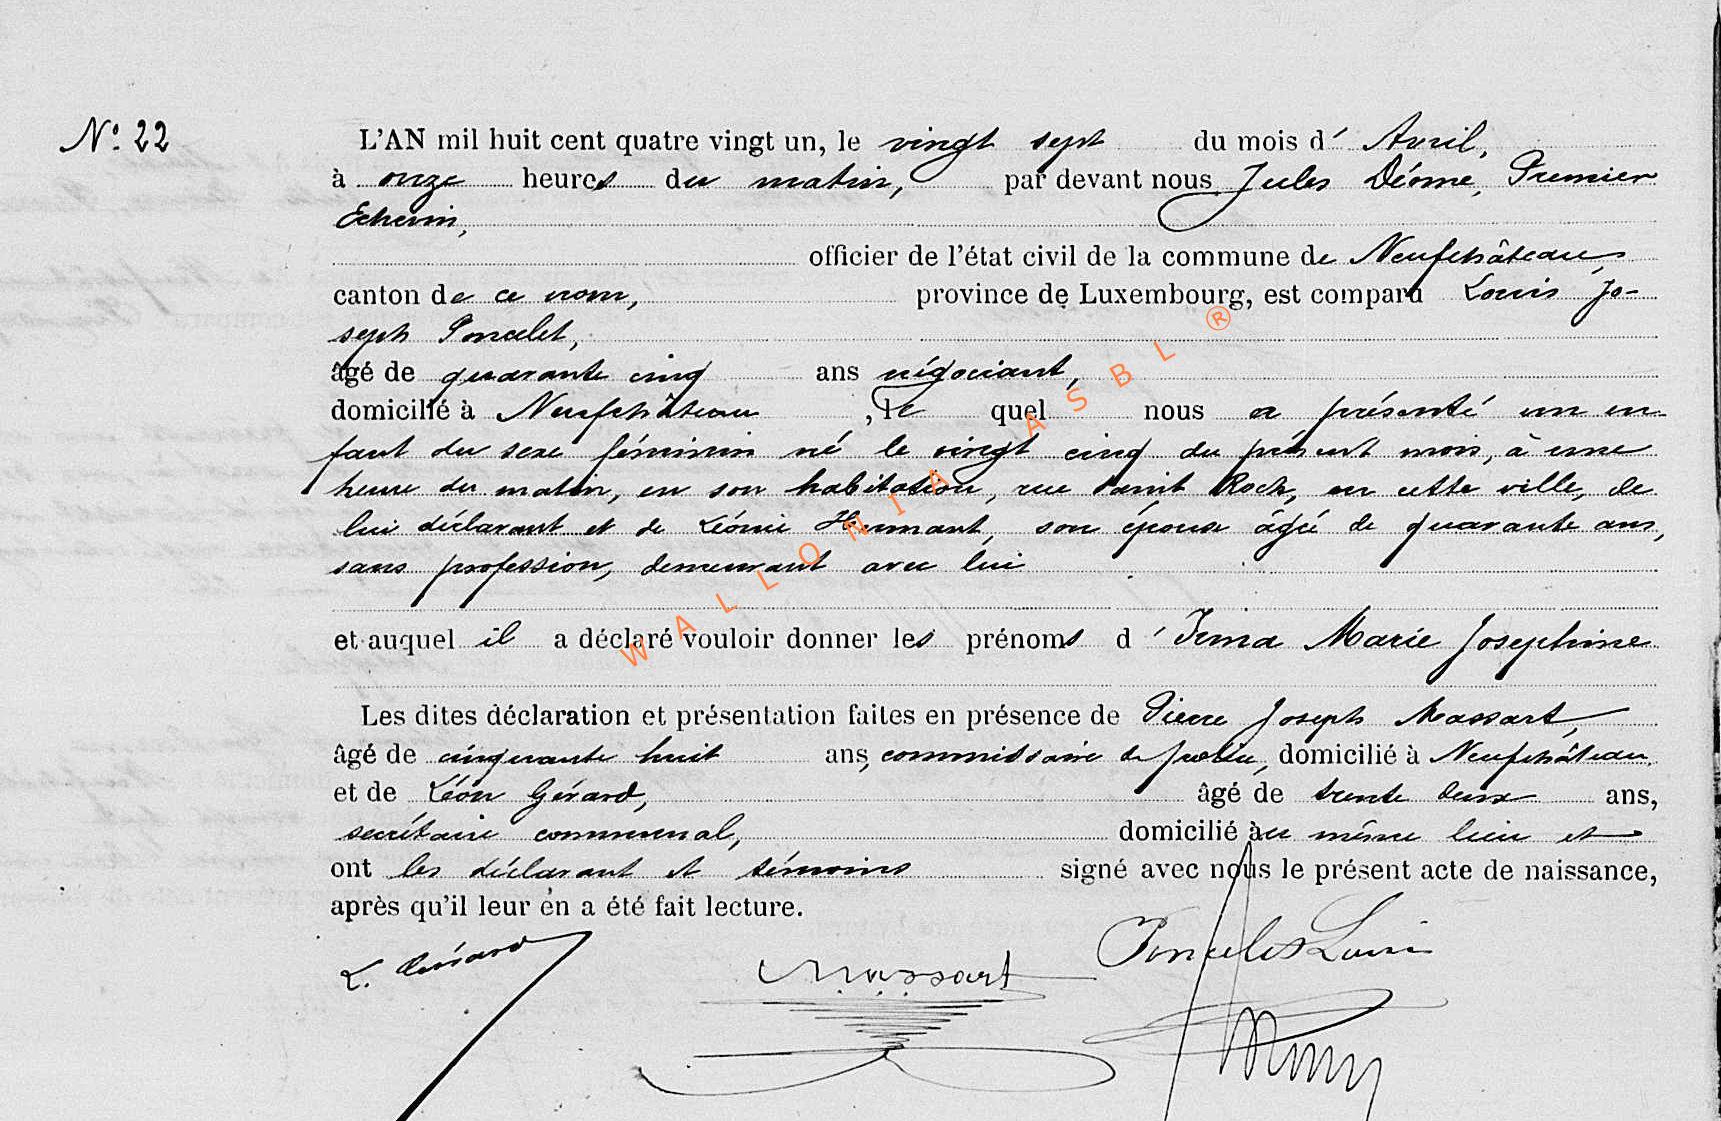 N° 22
L'AN mil huit cent quatre vingt un, le vingt sept du mois d' Avril,
à onze heures du matin, par devant nous Jules Déome, Premier
Echevin,
officier de l'état civil de la commune de Neufchâteau,
canton de ce nom, province de Luxembourg, est comparu Louis Jo-
seph Poncelet,
âgé de quarante cinq ans négociant,
domicilié à Neufchâteau, le quel nous a présenté un en
fant du sexe féminin né le vingt cinq du présent mois, à une
heure du matin, en son habitation, rue Saint Roch, en cette ville, de
lui déclarant et de Léonie Hermant, son épouse âgée de quarante ans,
sans profession, demeurant avec lui
et auquel il a déclaré vouloir donner les prénoms d' Irma Marie Josephine
Les dites déclaration et présentation faites en présence de Pierre Joseph Massart,
âgé de cinquante huit ans, commissaire de police, domicilié à Neufchâteau
et de Léon Gérard, âgé de trente deux ans,
secrétaire communal, domicilié au même lieu et
ont les déclarant et témoins signé avec nous le présent acte de naissance,
après qu'il leur en a été fait lecture.
L. Gérard Massart Poncelet Louis
WALLONIA ASBL ®